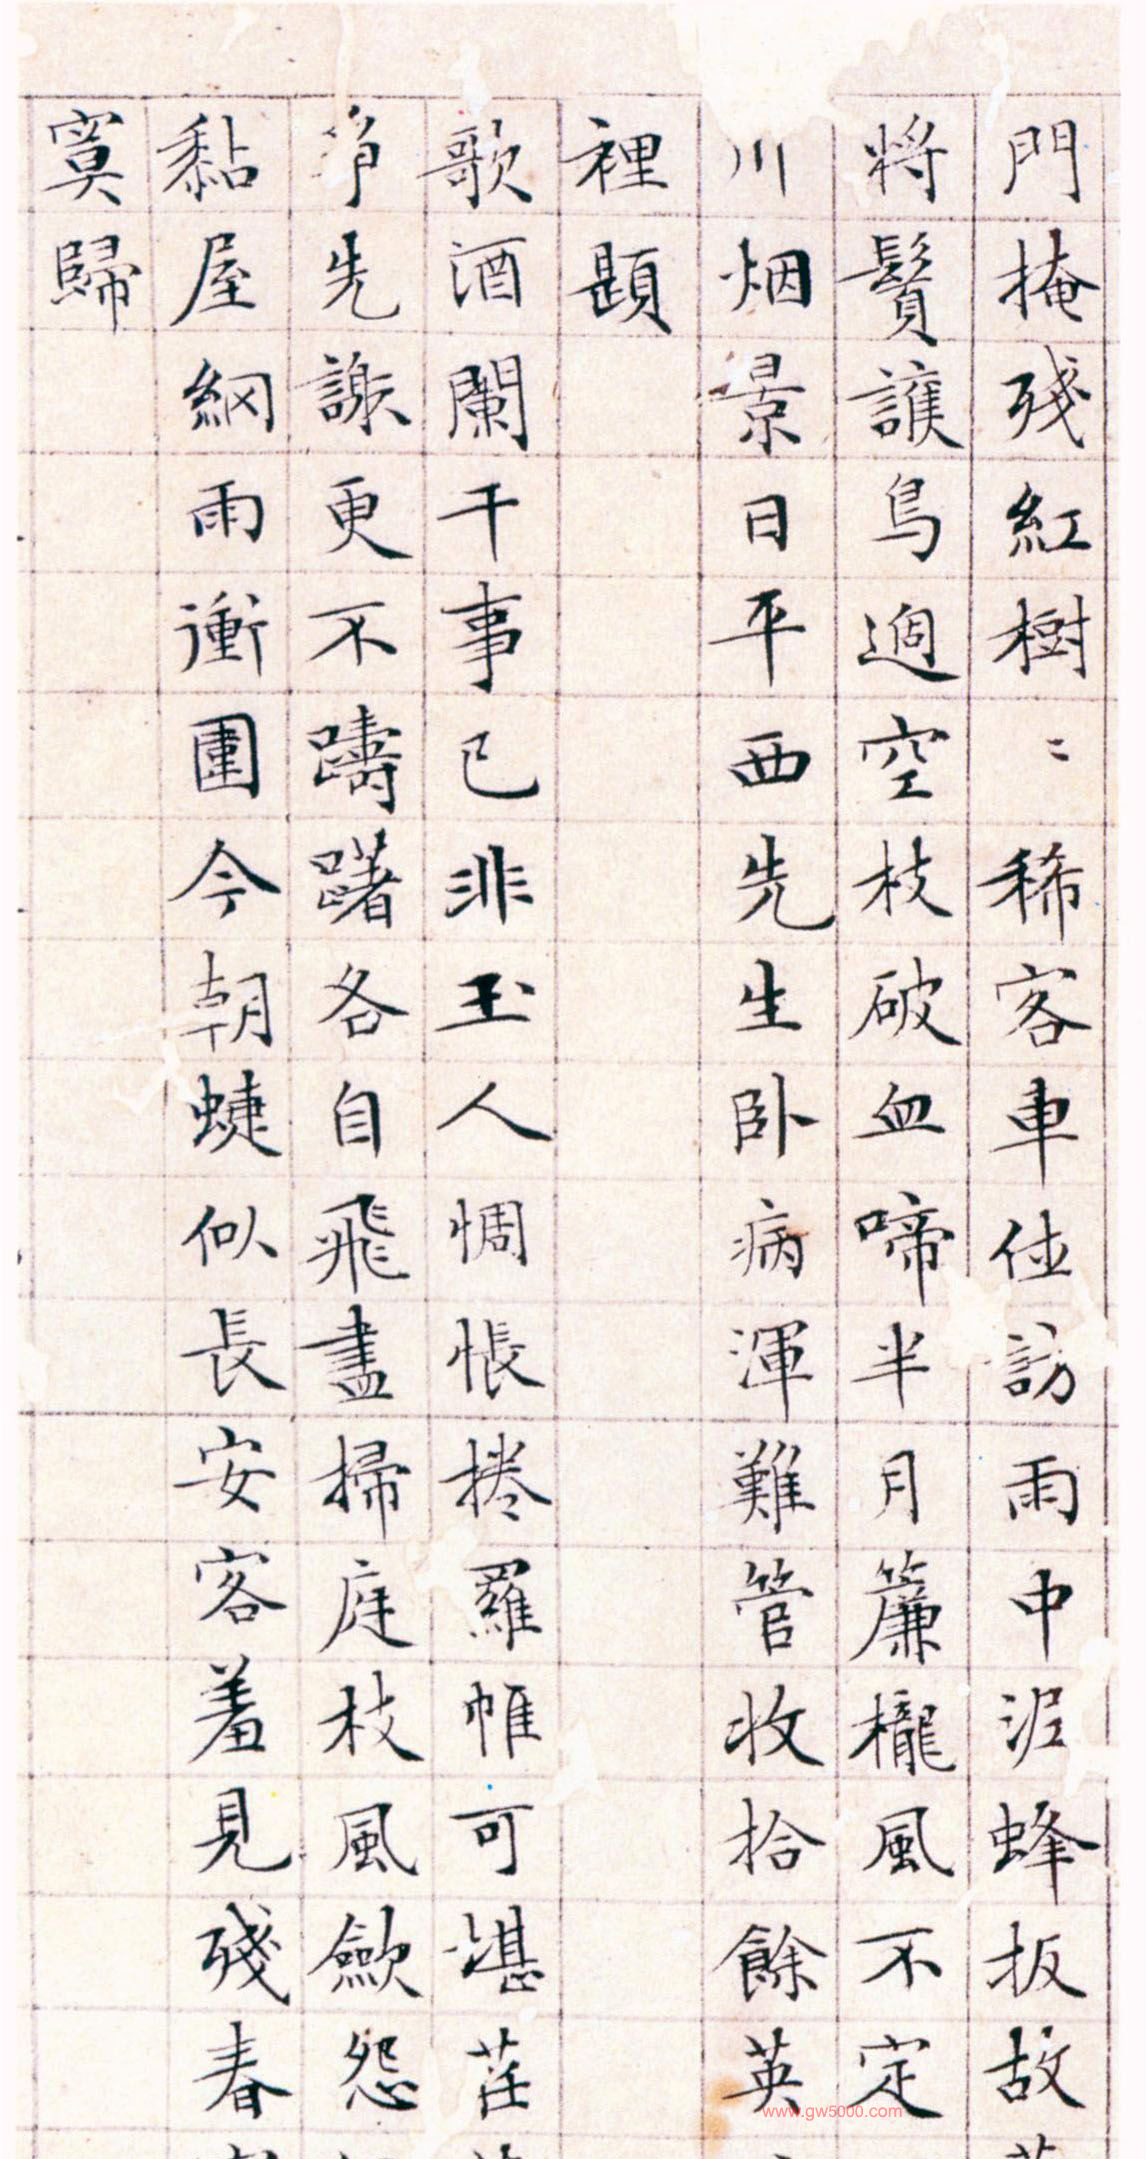 門掩殘紅樹〻稀客車位訪雨中泥蜂扳故
將鬢護鳥過空枝破血啼半月簾櫳風不定
川烟景日平西先生卧病渾難管收拾餘英
裡題
歌酒闌干事已非玉人惆悵捲羅帷可堪茌
爭先謝更不躊躇各自飛盡掃庭枝風歛怨
黏屋網雨衝圍今朝蜨似長安客羞見殘春
寞歸
www.gw5000.com